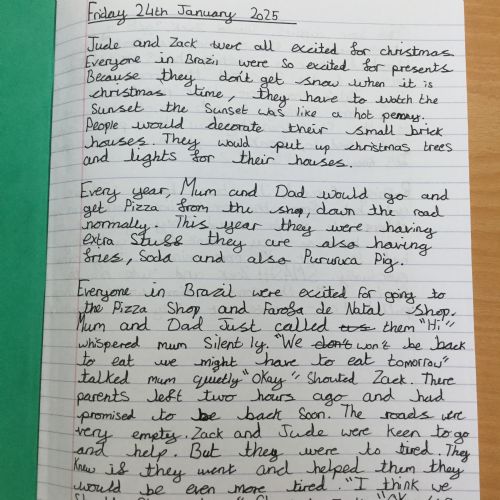 Friday 24th January 2025
Jude and Zack were all excited for christmas
Everyone in Brazil were so excited for presents
Because they don't get snow when it is
christmas time, they have to watch the
sunset the sunset was like a hot penny.
People would decorate their small brick
houses. They would put up christmas trees
and lights for their houses.
Every year, Mum and Dad would go and
get Pizza from the shop, down the road
normally. This year they were having
extra Stuff they are also having
fries, Soda and also Pururuca Pig.
Everyone in Brazil were excited for going to
the Pizza Shop and Farofa de Natal shop.
Mum and Dad Just called them "Hi"
whispered mum Silently. "We don't won't be back
to eat we might have to eat tomorrow"
talked mum quietly "Okay" Shouted Zack. There
parents left two hours ago and had
promised to be back Soon. The roads were
very empty. Zack and Jude were keen to go
and help. But they were to tired. They
Knew if they went and helped them they
would be even more tired. "I think we